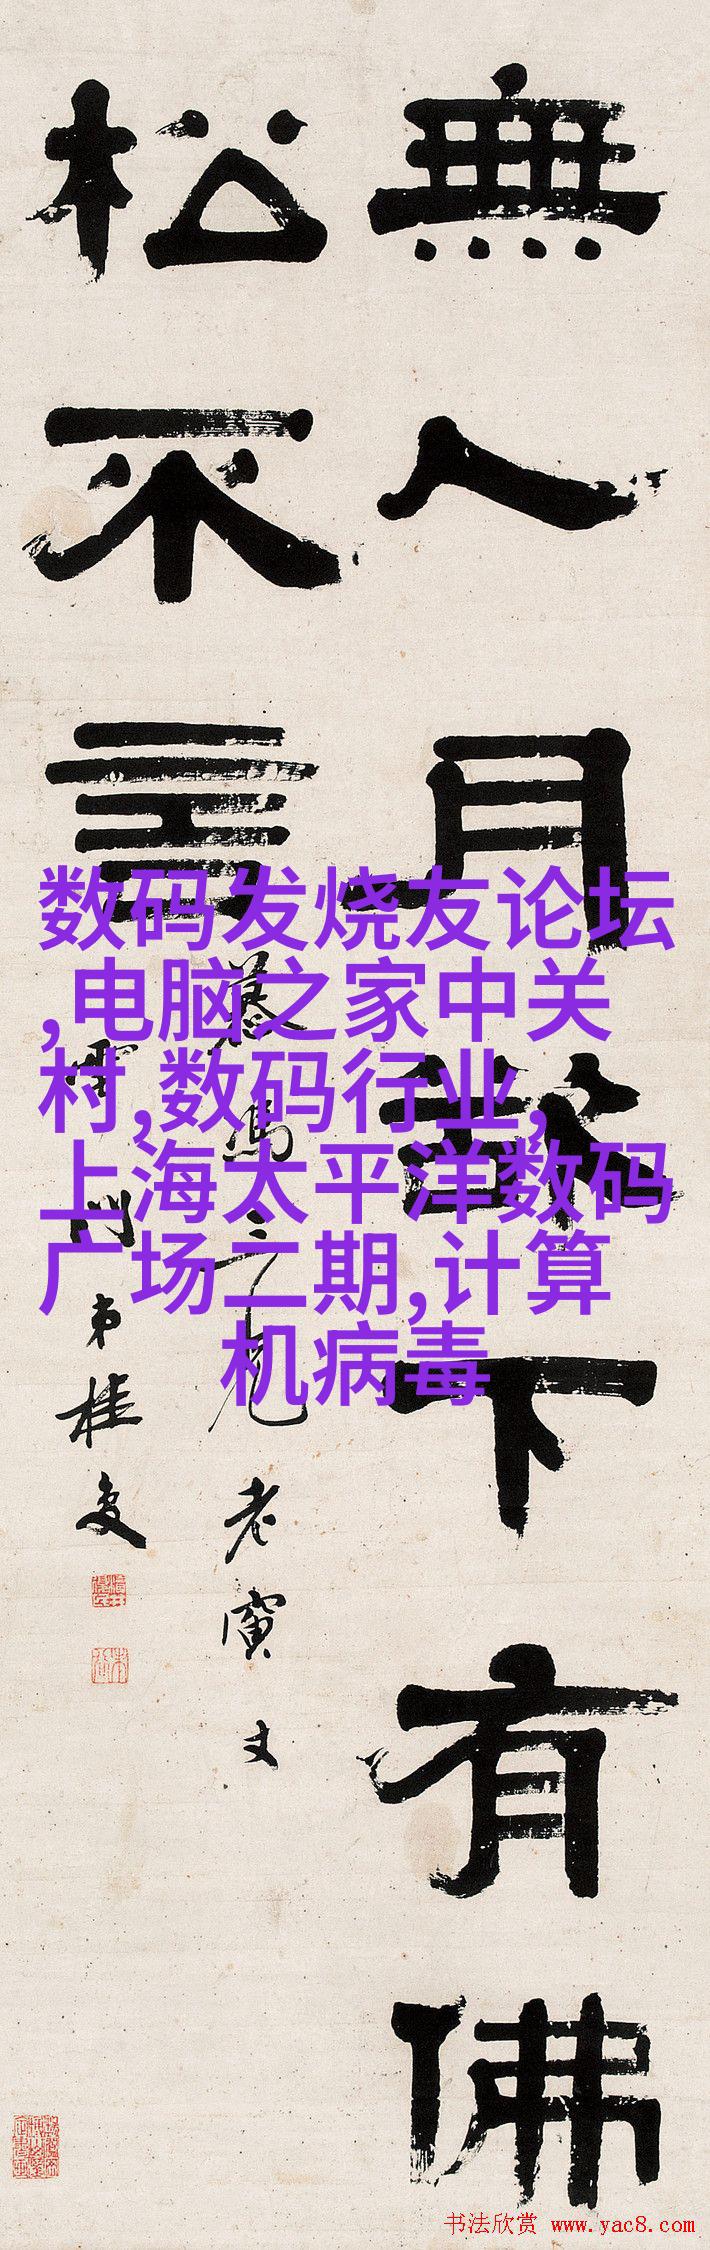 無人月敲下有佛
松不言
慕焉三兄老寅丈
雲門弟桂友
数码发烧友论坛
,电脑之家中关
村,数码行业,
上海太平洋数码
广场二期,计算
机病毒
书法欣赏 www.yac8.com